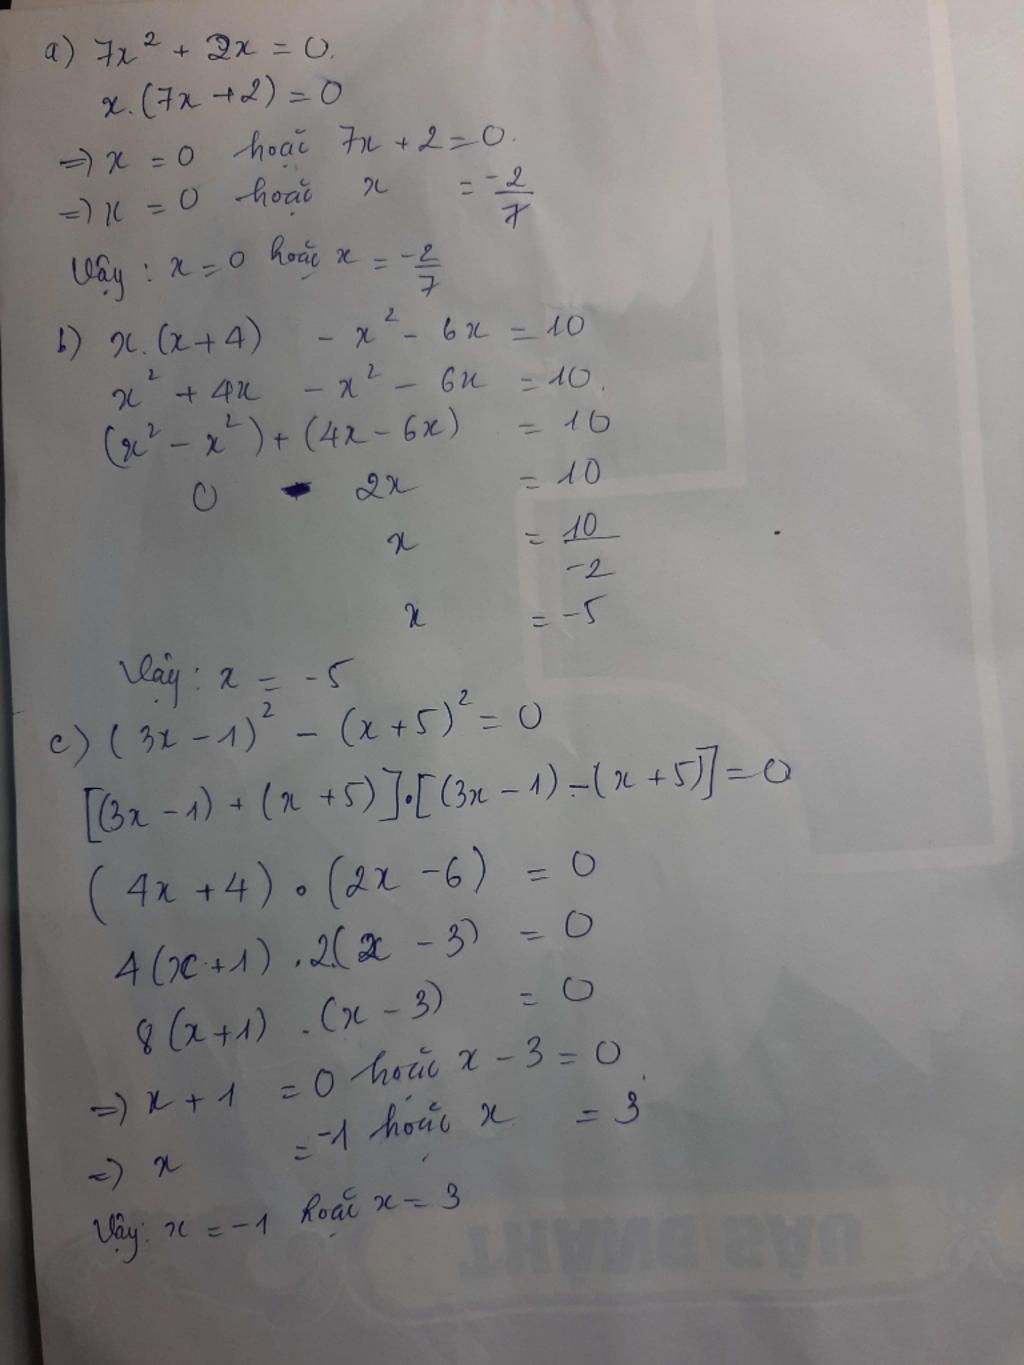 a) 7x² + 2x = 0.
x.(7x+2) = 0
=> x = 0 hoặc 7x + 2 = 0.
=> x = 0 hoặc x = -2/7
Vậy : x = 0 hoặc x = -2/7
b) x.(x+4) - x² - 6x = 10
x² + 4x - x² - 6x = 10.
(x² - x²) + (4x - 6x) = 10
0 - 2x = 10
x = 10/-2
x = -5
Vậy : x = -5
c) (3x - 1)² - (x+5)² = 0
[(3x - 1) + (x + 5)].[(3x - 1) - (x + 5)] = 0
(4x + 4) . (2x - 6) = 0
4(x+1) .2(x - 3) = 0
8(x+1) .(x - 3) = 0
=> x + 1 = 0 hoặc x - 3 = 0.
=> x = -1 hoặc x = 3
Vậy: x = -1 hoặc x = 3